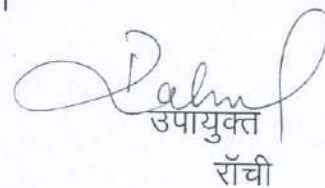 ।
उपायुक्त
राॅंची